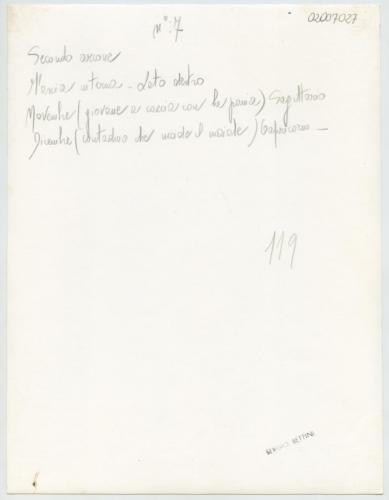 n°:7
02007027
Secondo arcone
Fascia interna - Lato destro
Novembre (giovane a caccia con la pania) Sagittario
Dicembre (contadino che uccide il maiale) Capricorno -
119
SERGIO BETTINI